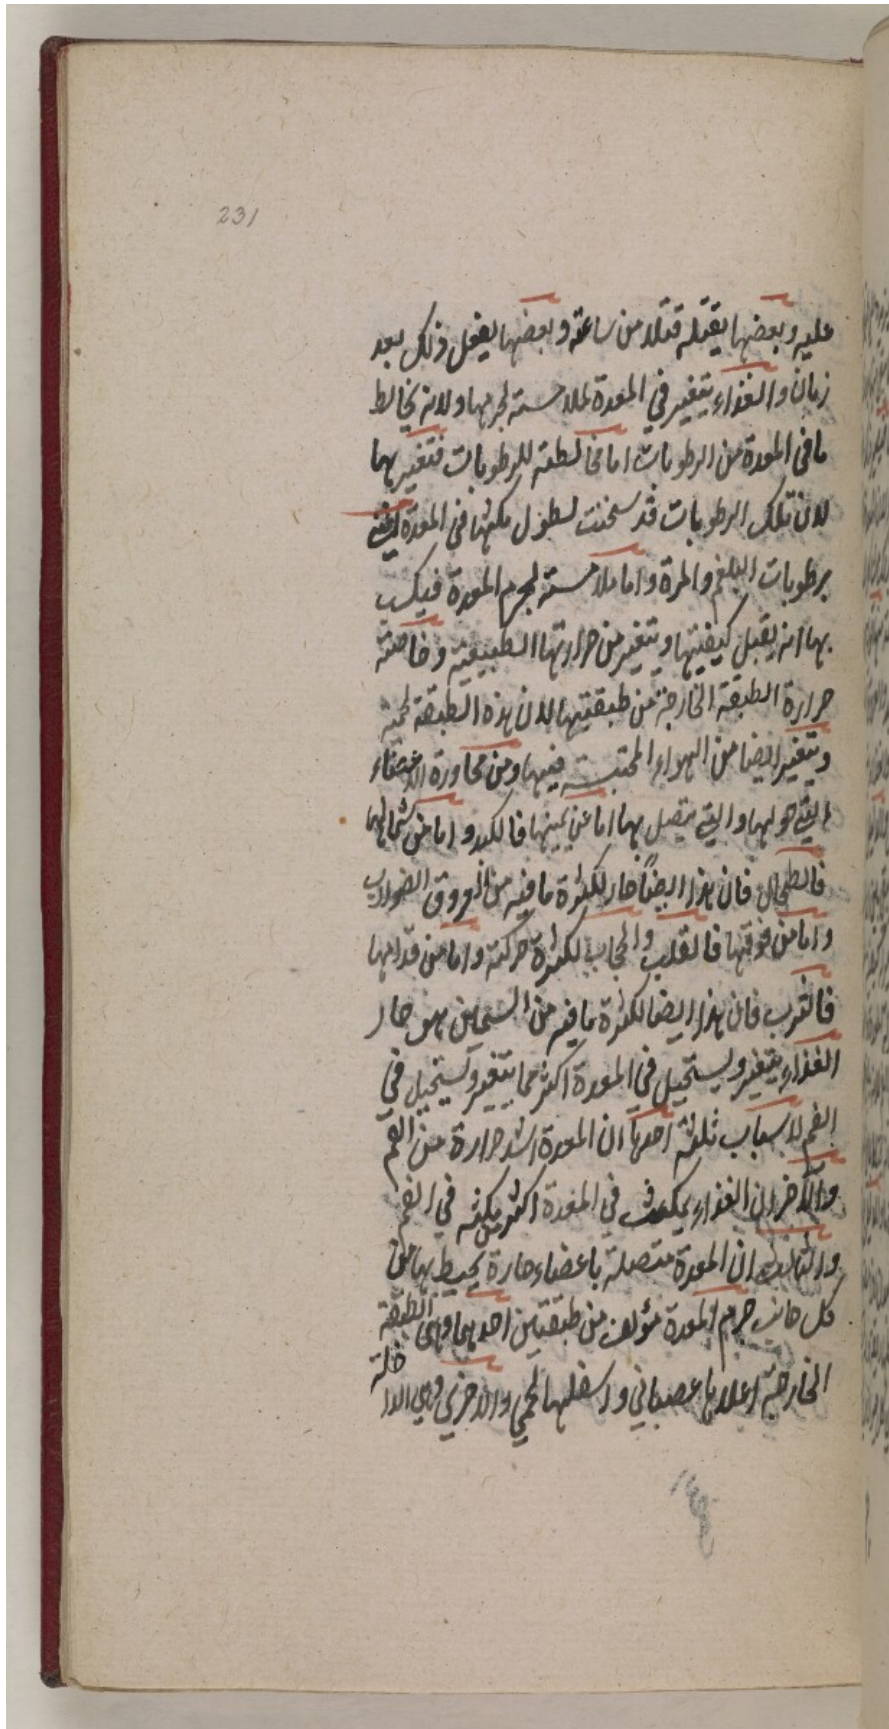 231
عليه وبعضها يقتله قتلا من ساعته وبعضها يفعل ذلك بعد
زمان والغذاء يتغير في المعدة لملامسته لجرمها ولانه يخالط
ما في المعدة من الرطوبات اما مخالطته للرطوبات فتغير بها
لان تلك الرطوبات قد سخنت لطول مكثها في المعدة اعني
برطوبات البلغم والمرة واما ملامسته لجرم المعدة فيكسب
بها انه يقبل كيفيتها ويتغير من حرارتها الطبيعية وخاصته
حرارة الطبقة الخارجة من طبقتيها لان هذه الطبقة لحمية
ويتغير ايضا من الهواء المحتبسة فيها ومن مجاورة الاعضاء
التي حولها والتي يتصل بها اما عن يمينها فالكبد واما من شمالها
فالطحال فان هذا ايضًا حار لكثرة ما فيه من العروق الضوارب
واما من فوقها فالقلب والحجاب لكثرة حركته واما من قدامها
فالثرب فان هذا ايضا لكثرة ما فيه من السمين هو حار
الغذاء يتغير ويستحيل في المعدة اكثر مما يتغير ويستحيل في
الفم لاسباب ثلثة احدها ان المعدة اشد حرارة من الفم
والآخر ان الغذاء يمكث في المعدة اكثر من مكثه في الفم
والثالث ان المعدة متصلة باعضاء حارة يحيط بها من
كل جانب جرم المعدة مؤلف من طبقتين احدهما وهى الطبقة
الخارجة اعلاها عصباني واسفلها لحمي والاخرى وهي الداخلة